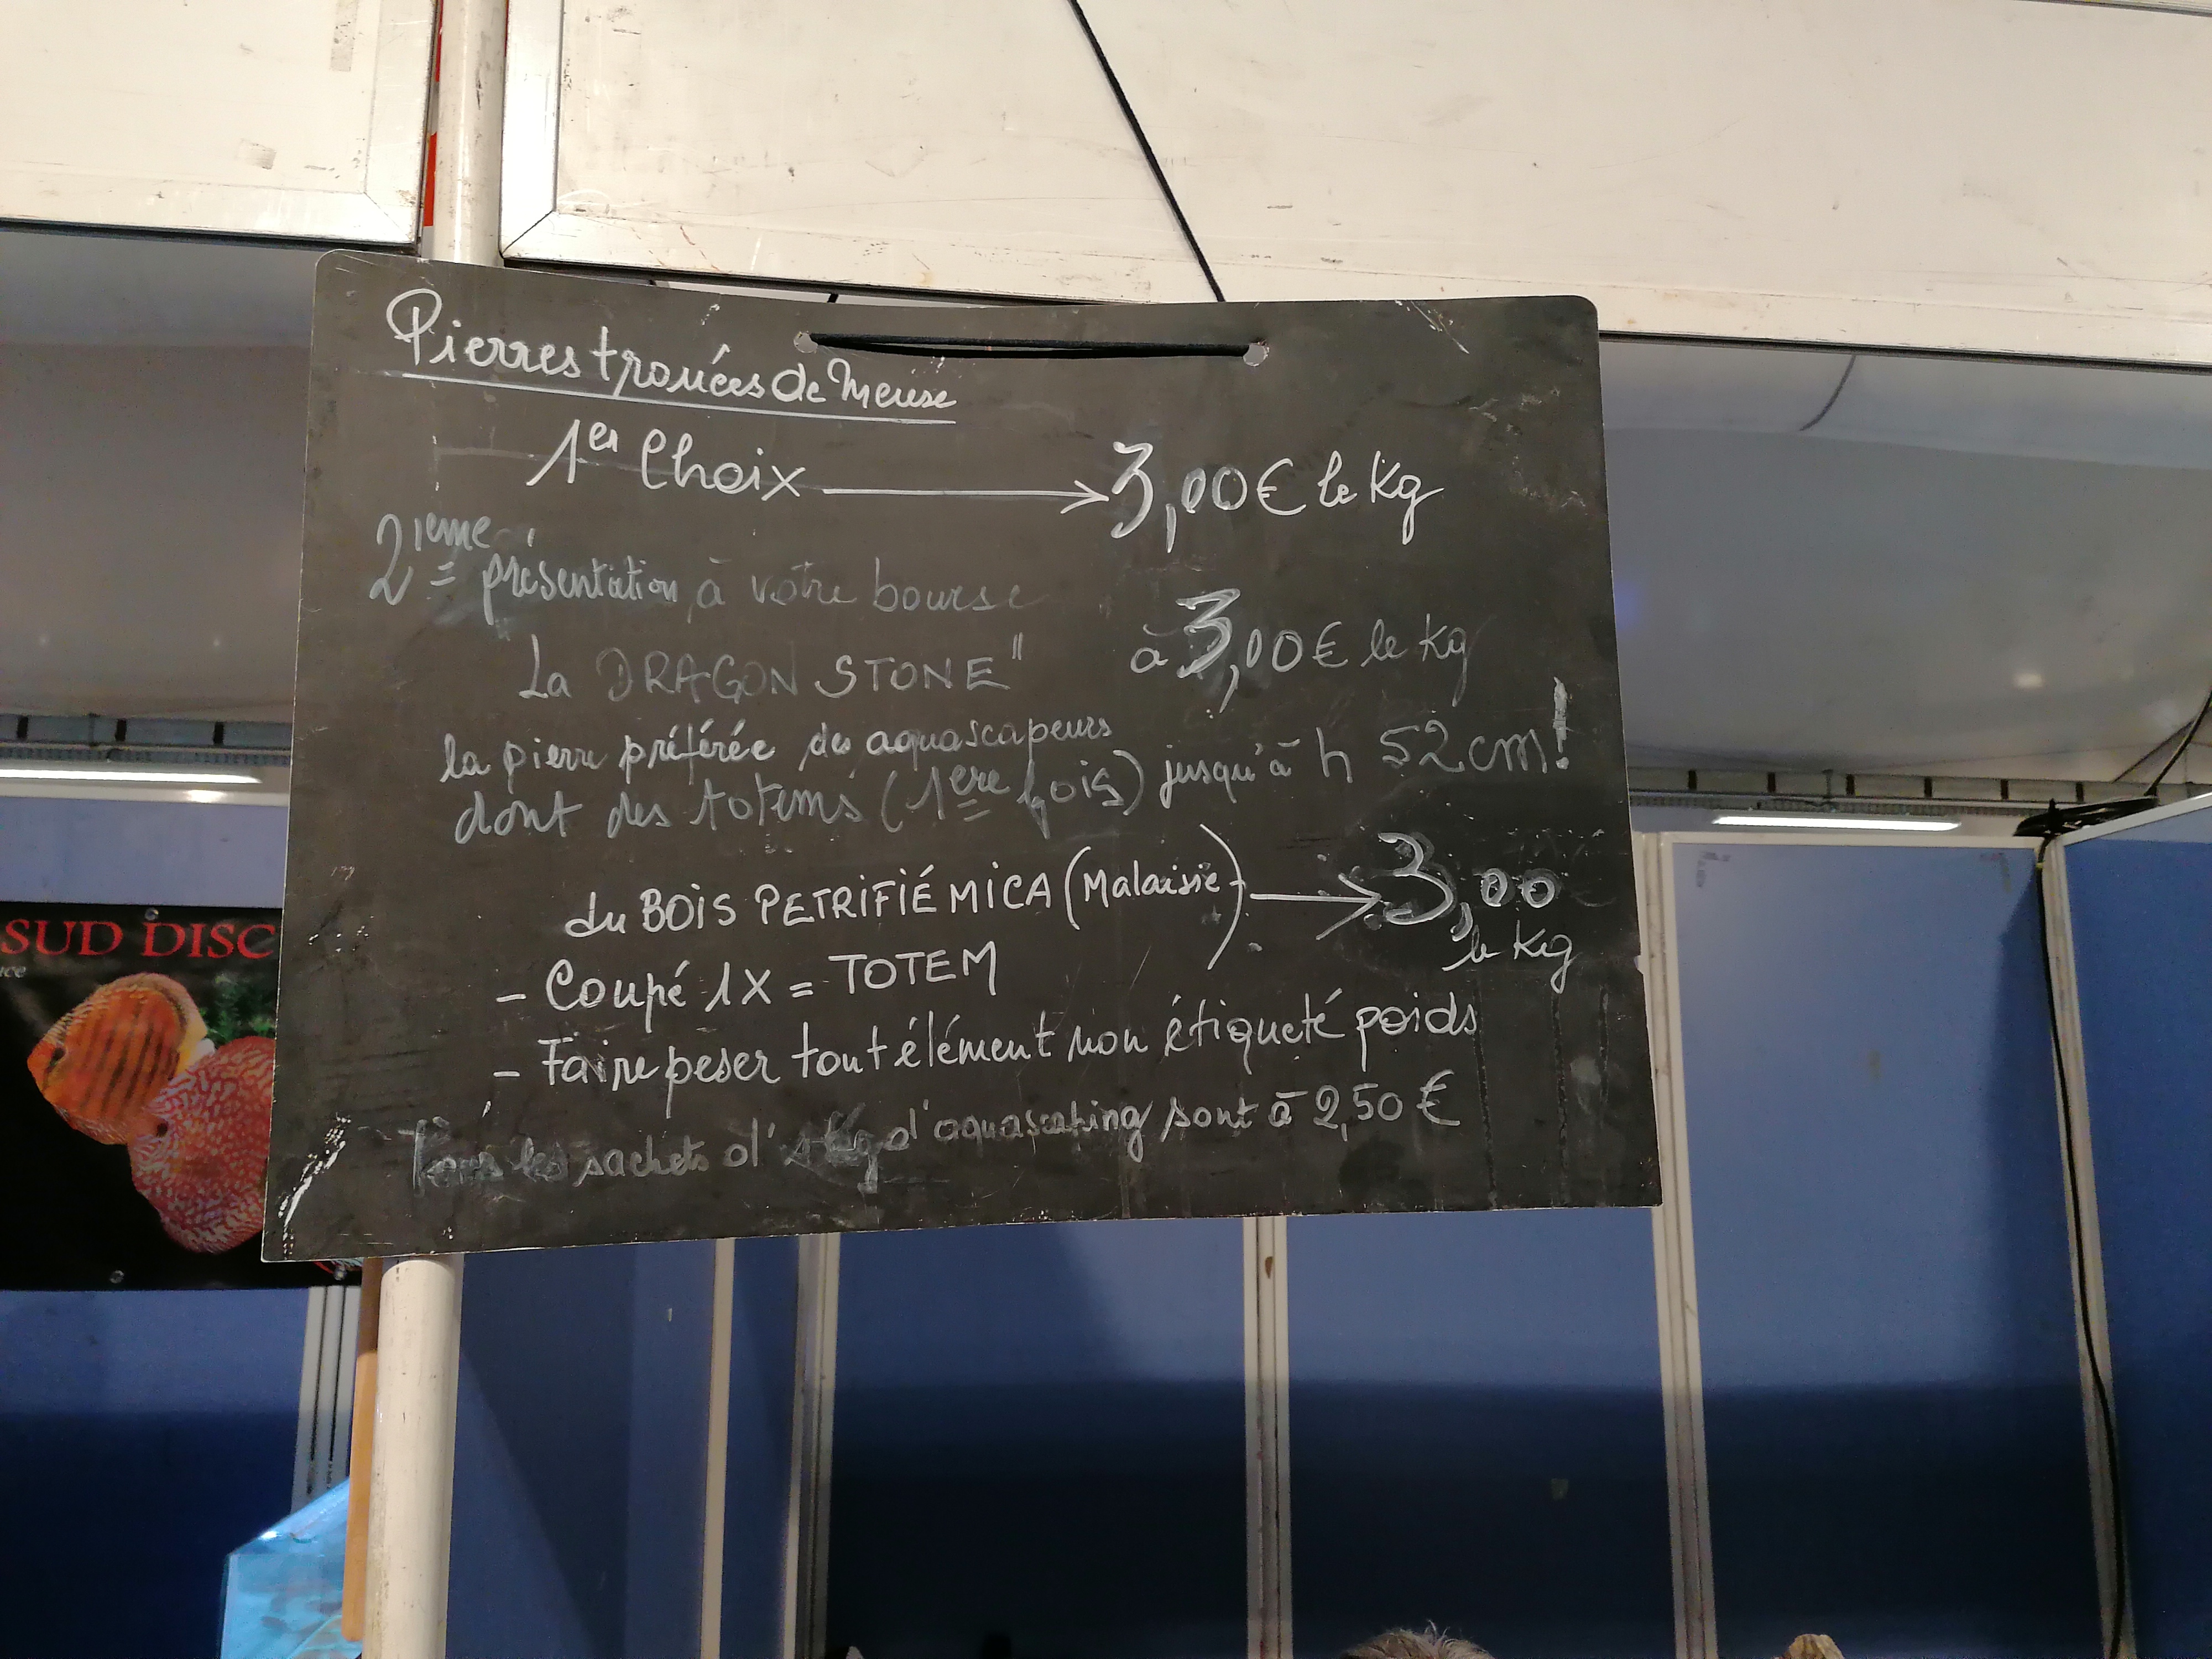 Pierres trouées de Meuse
1er Choix → 3,00 € le Kg
2ieme présentation à votre bourse
"La DRAGON STONE" à 3,00 € le Kg
la pierre préférée des aquascapeurs
dont des totems (1ere fois) jusqu'à h 52 cm!
du BOIS PETRIFIÉ MICA (Malaisie) → 3,00
le Kg
- Coupé 1X = TOTEM
- Faire peser tout élément non étiqueté poids
Tous les sachets d' d'aquascaping sont à 2,50 €
SUD DISC